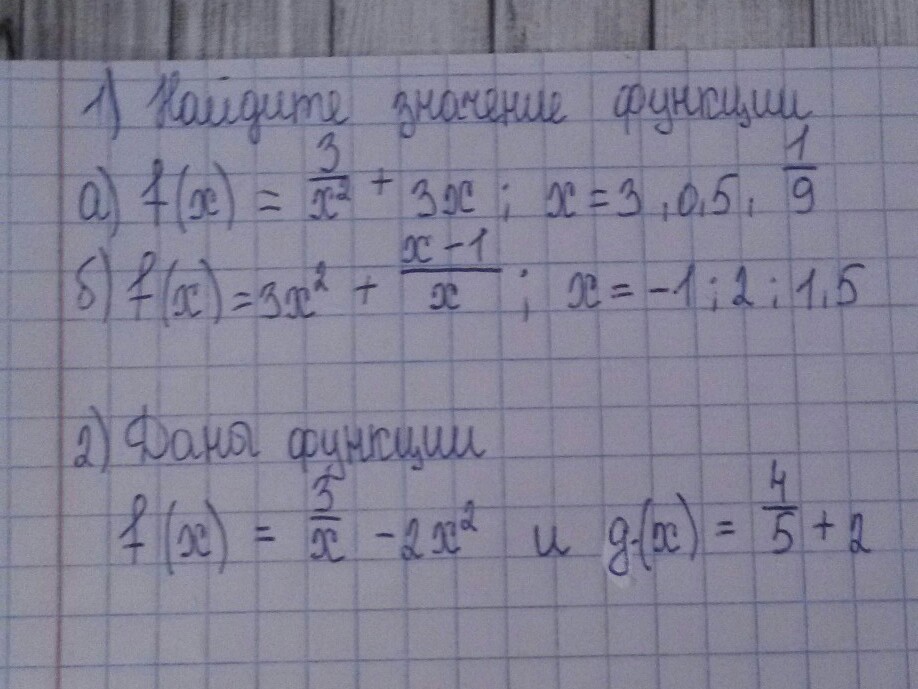 1) Найдите значение функции
а) f(x) = 3/x² + 3x; x = 3, 0,5, 1/9
б) f(x) = 3x² + (x-1)/x; x = -1; 2; 1,5
2) Даны функции
f(x) = 5/x - 2x² и g(x) = 4/5 + 2